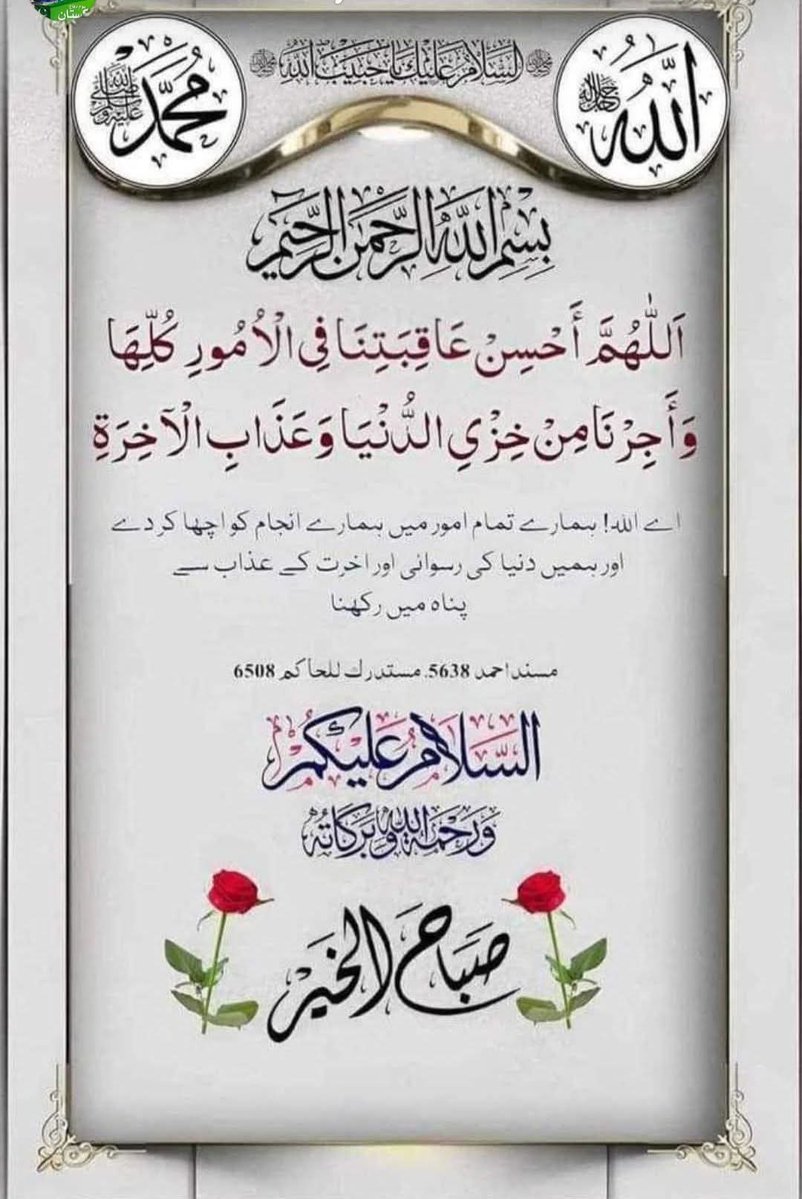 السلام علیك یا حبیب الله
الله جل جلاله
محمد صلى الله عليه وسلم
بِسْمِ اللهِ الرَّحْمٰنِ الرَّحِيْمِ
اَللّٰهُمَّ أَحْسِنْ عَاقِبَتِنَا فِي الْاُمُورِ كُلِّهَا
وَأَجِرْنَا مِنْ خِزْيِ الدُّنْيَا وَعَذَابِ الْآخِرَةِ
اے اللہ! ہمارے تمام امور میں ہمارے انجام کو اچھا کر دے
اور ہمیں دنیا کی رسوائی اور اخرت کے عذاب سے
پناہ میں رکھنا
مسند احمد 5638، مستدرك للحاكم 6508
السَّلَامُ عَلَيْكُمْ
وَرَحْمَةُ اللهِ وَبَرَكَاتُهُ
صَبَاحُ الْخَيْر